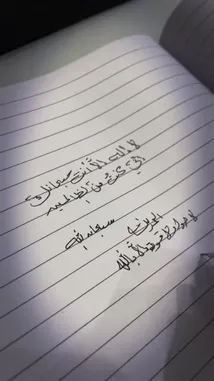 لا إله إلا أنت سبحانك
إني كنت من الظالمين
سبحان الله
الحمد لله
لا حول ولا قوة إلا بالله